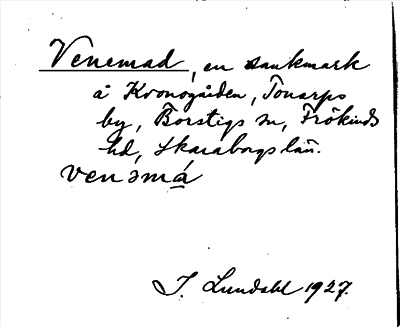 Venemad, en sankmark
å Kronogården, Tonarps
by, Borstigs sn, Frökinds
hd, Skaraborgs län.
venəmá
J. Lundahl 1927.